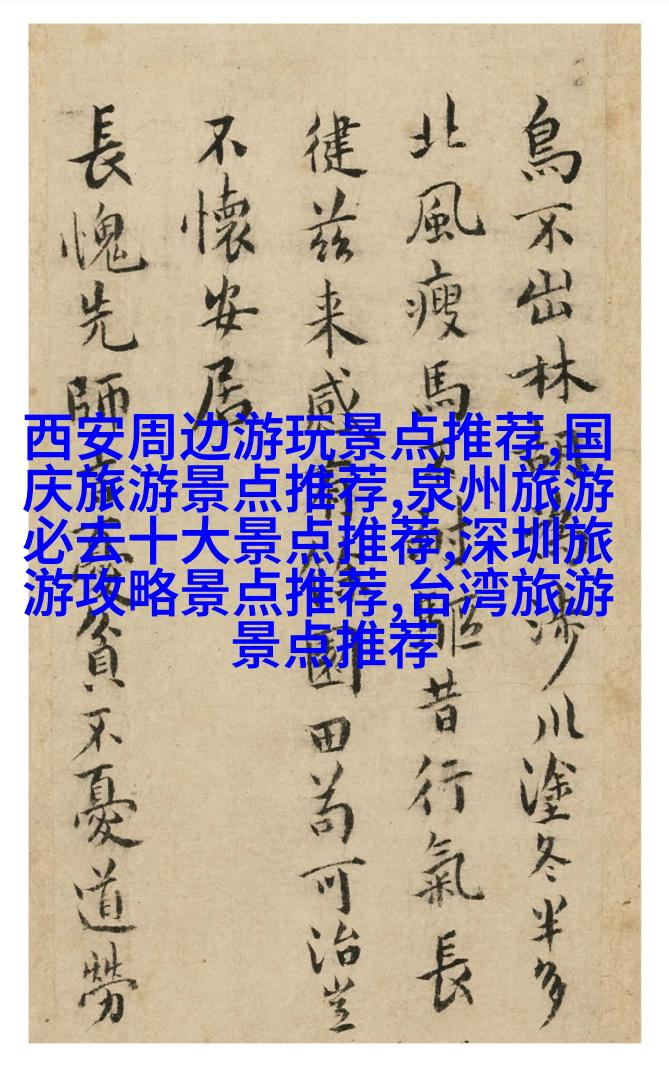 鳥不出林胡為涉川塗冬半多
北風瘦馬不耐驅昔行氣長
健茲来感有國田苟可治豈
不懷安居
長愧先師言憂貧不憂道勞
西安周边游玩景点推荐,国
庆旅游景点推荐,泉州旅游
必去十大景点推荐,深圳旅
游攻略景点推荐,台湾旅游
景点推荐